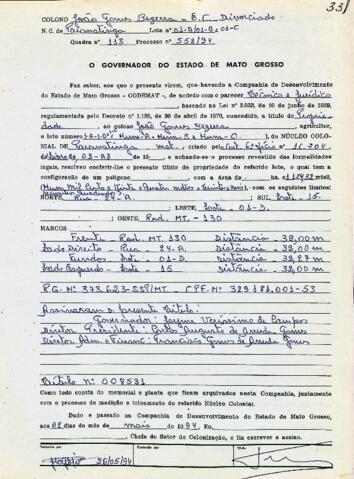 331
COLONO João Gomes Bezerra - B.C. Divorciado
N. C. de Paranatinga Lote nº 01-A/01-B e 01-C
Quadra nº 113 Processo nº 558/94
O GOVERNADOR DO ESTADO DE MATO GROSSO
Faz saber, aos que o presente virem, que, havendo a Companhia de Desenvolvimento
do Estado de Mato Grosso - CODEMAT -, de acordo com o parecer Técnico e Jurídico
, bascado na Lei nº 2.938, de 10 de junho de 1969,
regulamentada pelo Decreto nº 1.138, de 90 de abril de 1970, concedido, a título de Proprie
dade, ao colono João Gomes Bezerra, agricultor,
o lote nº 1-A-1-B e 1 Hum-A - Hum-B e Hum-C, do NÚCLEO COLO-
NIAL DE Paranatinga mat., criado pela 11.704
e achando-se o processo revestido das formalidades
legais, resolveu conferir-lhe o presente título de propriedade do referido lote, o qual tem a
configuração de um polígono com a área de
(Hum Mil Cento e Vinte e Quatro metros e
, com os seguintes limites:
NORTE, Rua - 24-A. SUL Lote - 15.
; LESTE, Lote - 01-D.
; OESTE, Rod. MT-130
MARCOS
Frente - Rod. MT. 130 Distância - 38,00 m
Lado Direito - Rua - 24-A. Distância - 38,00 m
Fundos - Lote - 01-D. Distância - 38,27 m
Lado Esquerdo - Lote - 15 Distância - 32,00 m
R.G. Nº 373.623-SSP/MT - CPF. Nº 329.181.001-53
Assinaram o presente título:
Governador: Jayme Veríssimo de Campos
Diretor Presidente: Carlos Augusto de Arruda Gomes
Diretor Adm. e Financ: Francisco Gomes de Arruda Gomes
Título Nº 008531
Como tudo consta do memorial e planta que ficam arquivados nesta Companhia, juntamente
com o processo de medição e loteamento do referido Núcleo Colonial.
Dado e passado na Companhia de Desenvolvimento do Estado de Mato Grosso,
aos 02 dias do mês de maio de 1994. Eu,
, Chefe do Setor de Colonização, o fiz escrever e assino.
26/05/94